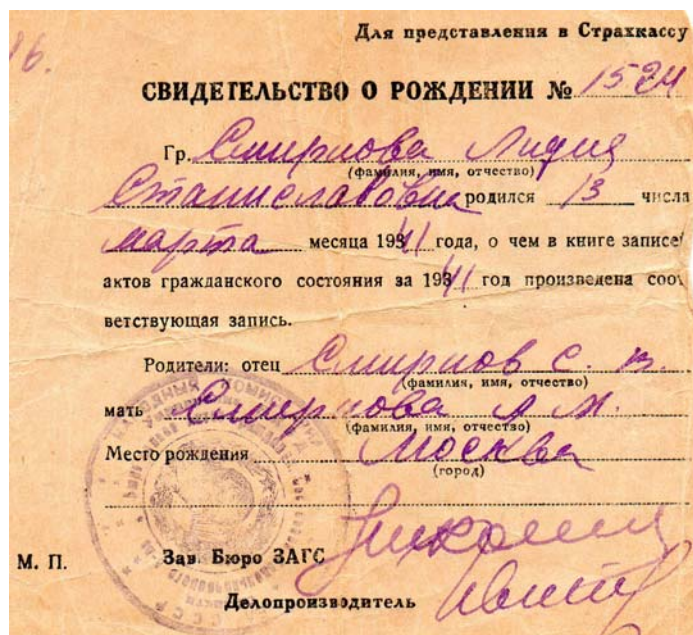 16.
Для представления в Страхкассу
СВИДЕТЕЛЬСТВО О РОЖДЕНИИ № 1524
Гр. Смирнова Лидия
(фамилия, имя, отчество)
Станиславовна родился 13 числа
марта месяца 1941 года, о чем в книге записе
актов гражданского состояния за 1941 год произведена соот
ветствующая запись.
Родители: отец Смирнов С. В.
(фамилия, имя, отчество)
мать Смирнова А. М.
(фамилия, имя, отчество)
Место рождения Москва
(город)
М. П. Зав. Бюро ЗАГС
Делопроизводитель